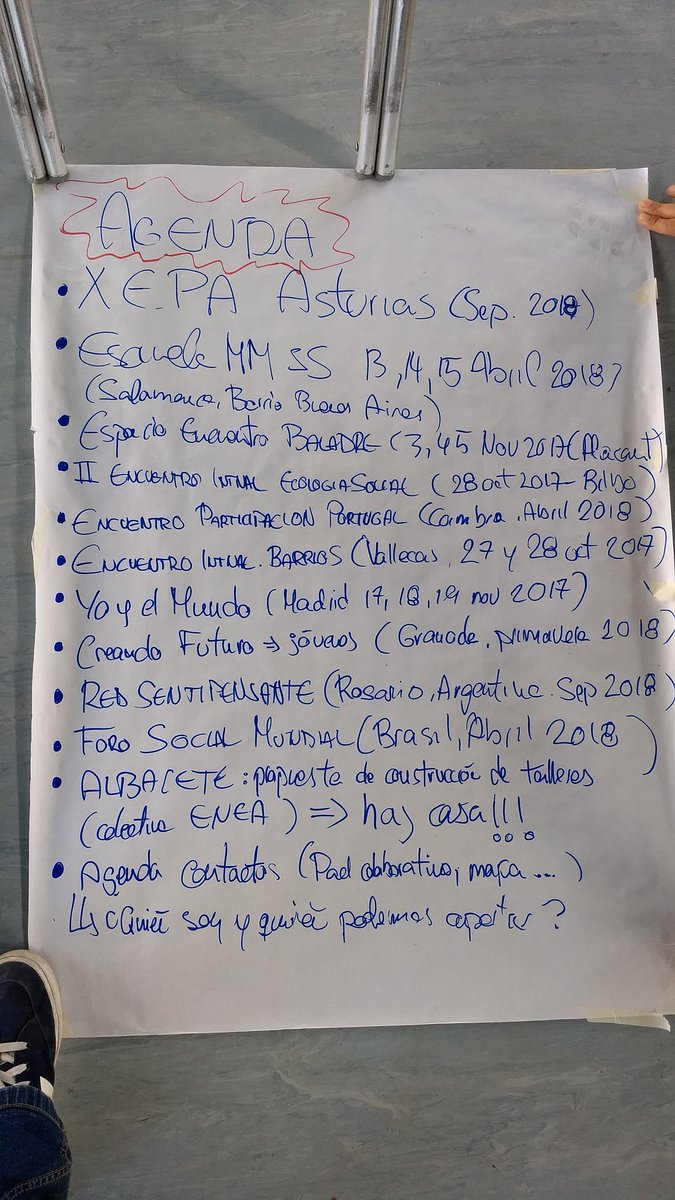 AGENDA
• XEPA Asturias (Sep. 2018)
• Escuela MM SS 13, 14, 15 Abril 2018)
(Salamanca, Barrio Buenos Aires)
• Espacio Encuentro BALADRE (3, 4 5 Nov 2017 (Alacant)
• II ENCUENTRO INTNAL ECOLOGIA SOCIAL (28 oct 2017 - Bilbo)
• ENCUENTRO PARTICIPACION PORTUGAL (Coimbra, Abril 2018)
• ENCUENTRO INTNAL. BARRIOS (Vallecas, 27 y 28 oct 2017)
• Yo y el Mundo (Madrid 17, 18, 19 nov 2017)
• Creando Futuro ⇒ jóvenes (Granada, primavera 2018)
• RED SENTIPENSANTE (Rosario, Argentina. Sep 2018)
• FORO SOCIAL MUNDIAL (Brasil, Abril 2018)
• ALBACETE: propuesta de construcción de talleres
(colectivo ENEA) ⇒ hay casa!!!
• Agenda Contactos (Pad colaborativo, mapa ...)
↳ ¿Quién soy y quién podemos aportar?